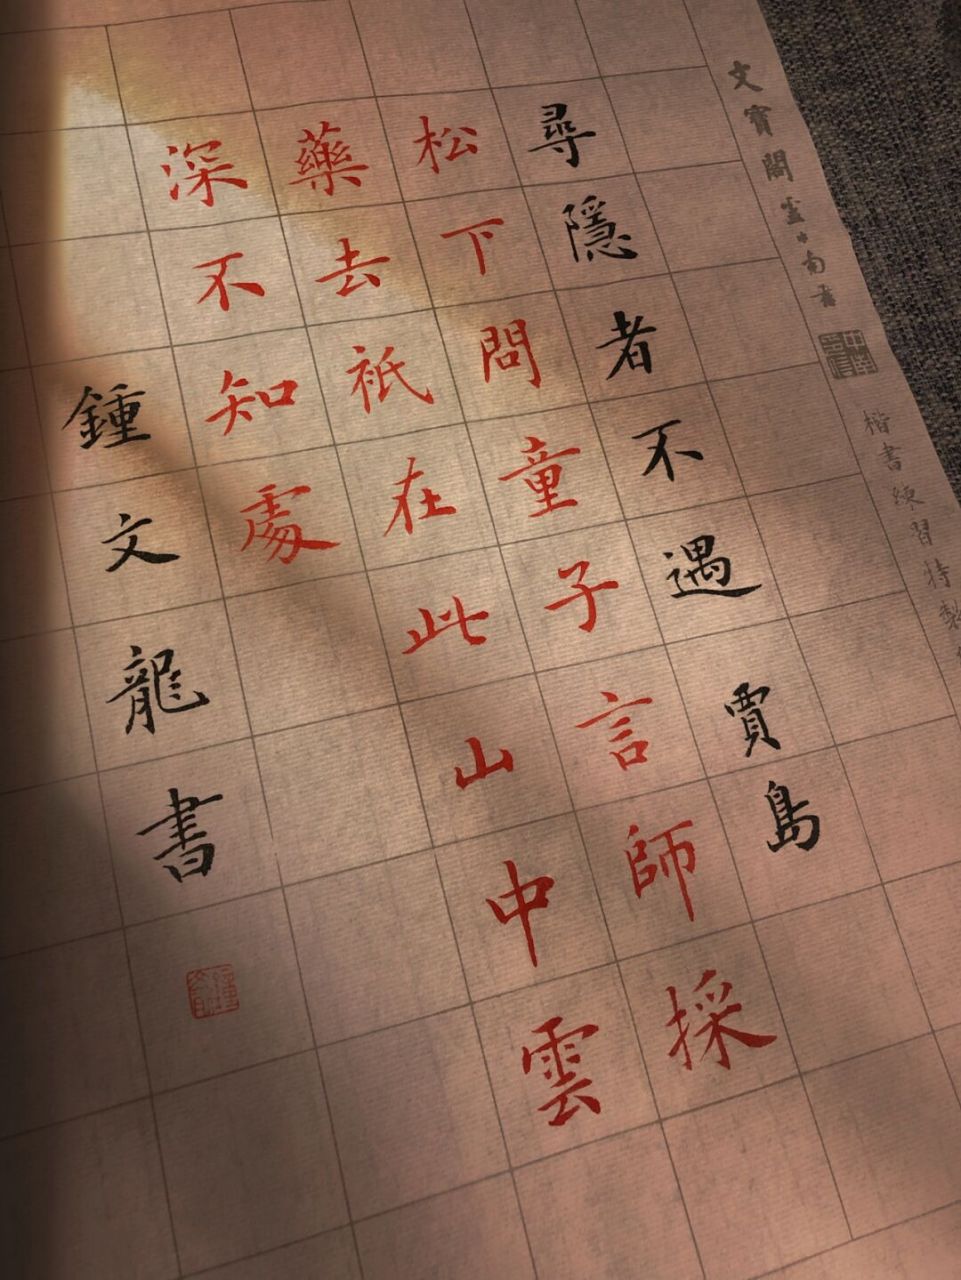 尋隱者不遇 賈島
松下問童子言師採
藥去祇在此山中雲
深不知處
鍾文龍書
楷書練習特製